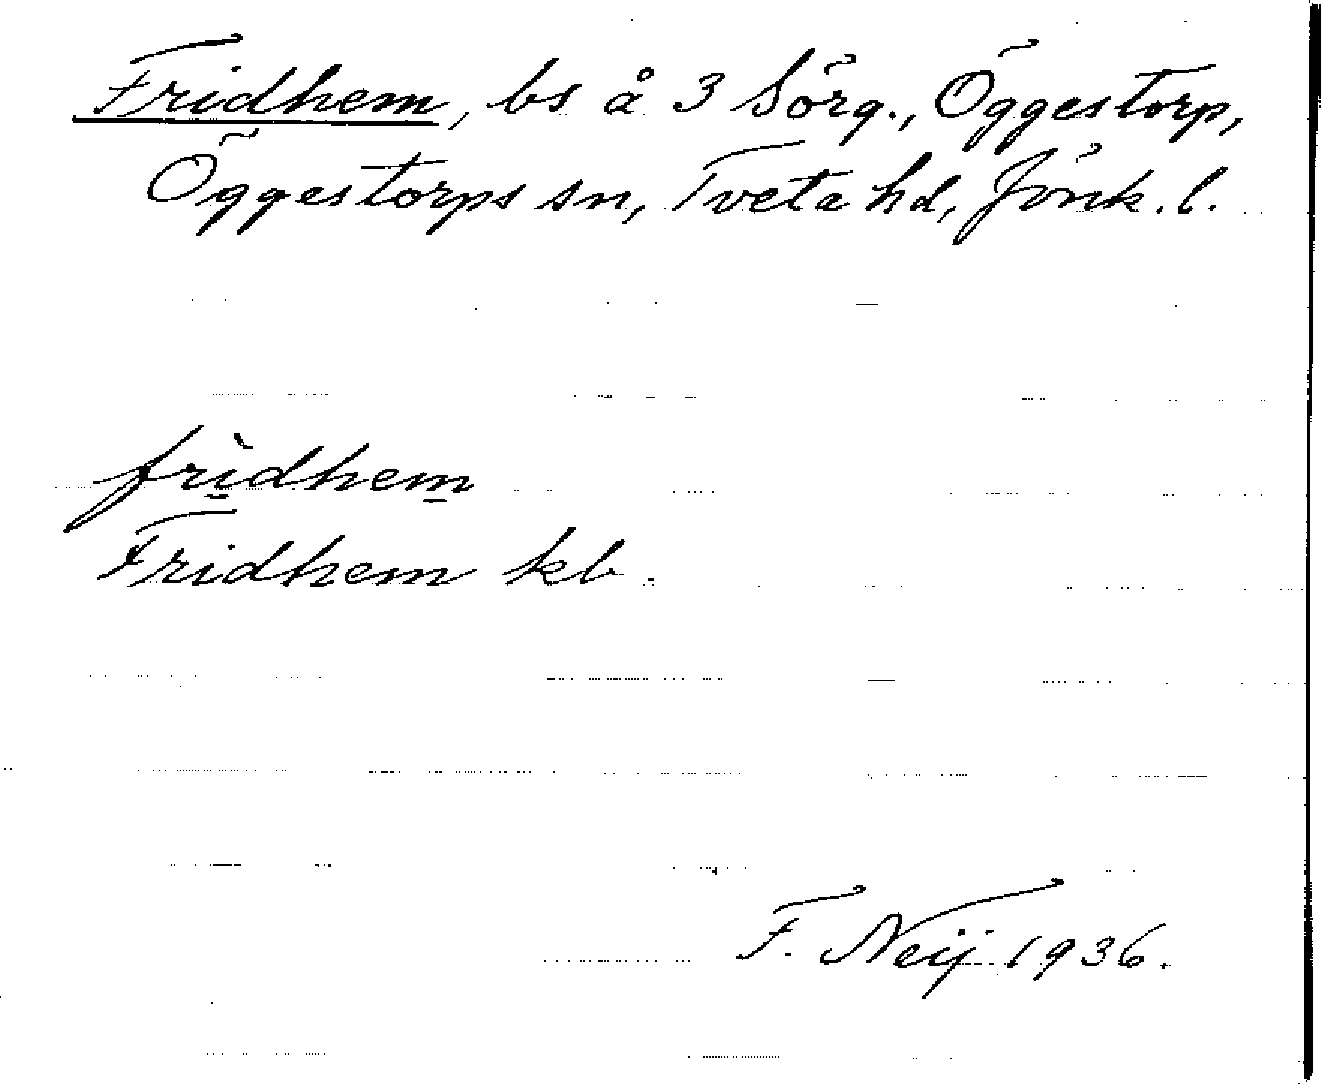 Fridhem, bs å 3 Sörg., Öggestorp,
Öggestorps sn, Tveta hd, Jönk. l.
frìdhem
Fridhem kb.
F. Neij 1936.